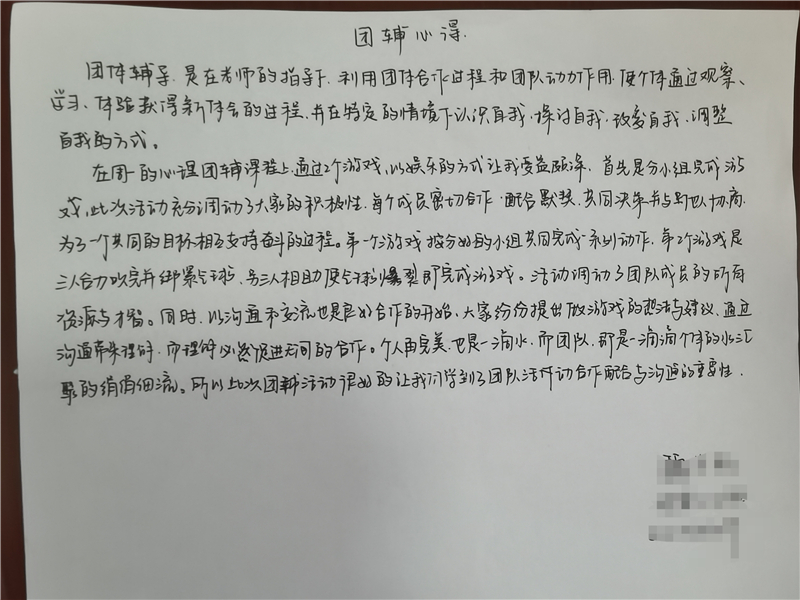 团辅心得
团体辅导,是在老师的指导下,利用团体合作过程和团队动力作用,使个体通过观察、
学习、体验获得新体会的过程,并在特定的情境下认识自我,探讨自我,改变自我,调整
自我的方式。
在周一的心理团辅课程上,通过2个游戏,以娱乐的方式让我受益颇深,首先是分小组完成游
戏,此次活动充分调动了大家的积极性,每个成员密切合作,配合默契,共同决策并与队协商,
为了一个共同的目标相互支持奋斗的过程。第一个游戏按分好的小组共同完成一系列动作,第2个游戏是
三人合力吹完并绑紧气球,另三人相助使气球爆裂即完成游戏。活动调动了团队成员的所有
资源与才智。同时,以沟通和交流也是良好合作的开始,大家纷纷提出做游戏的想法与建议,通过
沟通带来理解,而理解必然促进无间的合作。个人再完美,也是一滴水,而团队,那是一滴滴个体的水汇
聚的涓涓细流。所以此次团辅活动很好的让我们学到了团队活动合作配合与沟通的重要性.